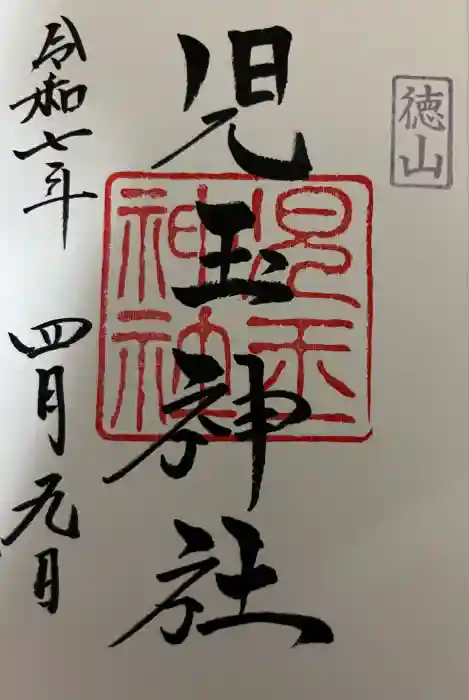 徳山
児玉神社
兒玉
神社
令和七年 四月九日